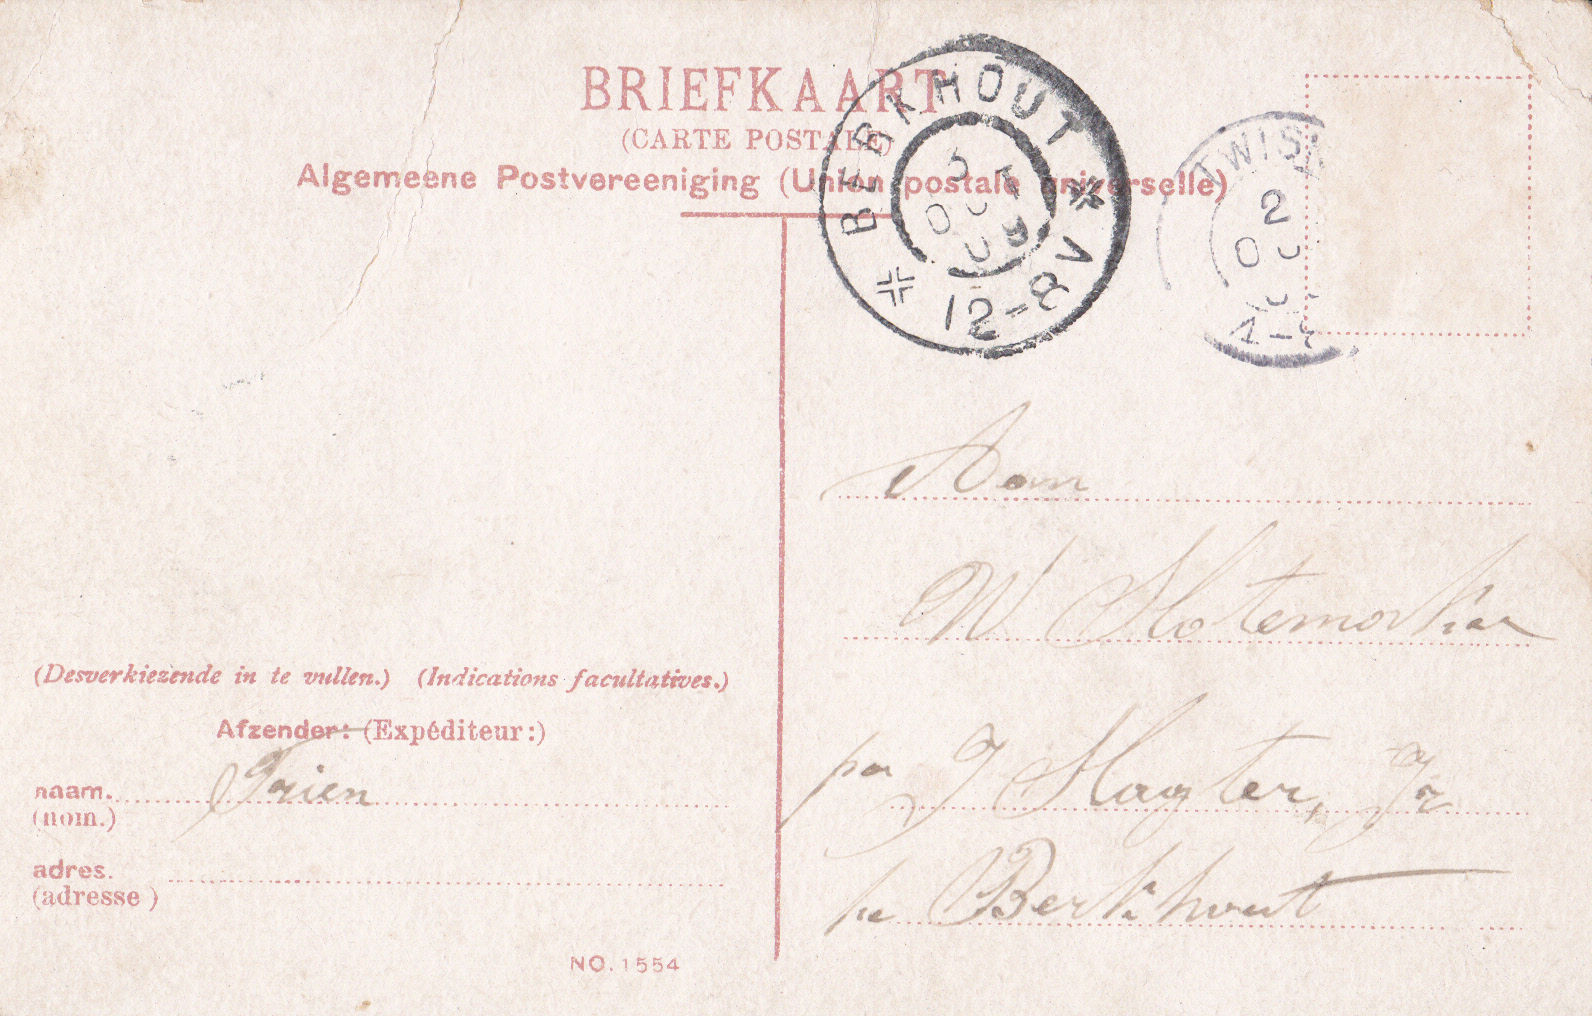 BRIEFKAART
(CARTE POSTALE)
Algemeene Postvereeniging (Union postale universelle)
BERKHOUT
12-8V
TWISK
2
Aan
W Slotemaker
pa J Slagter, Jr
te Berkhout
(Desverkiezende in te vullen.) (Indications facultatives.)
Afzender: (Expéditeur:)
naam. Trien
(nom.)
adres.
(adresse)
NO. 1554